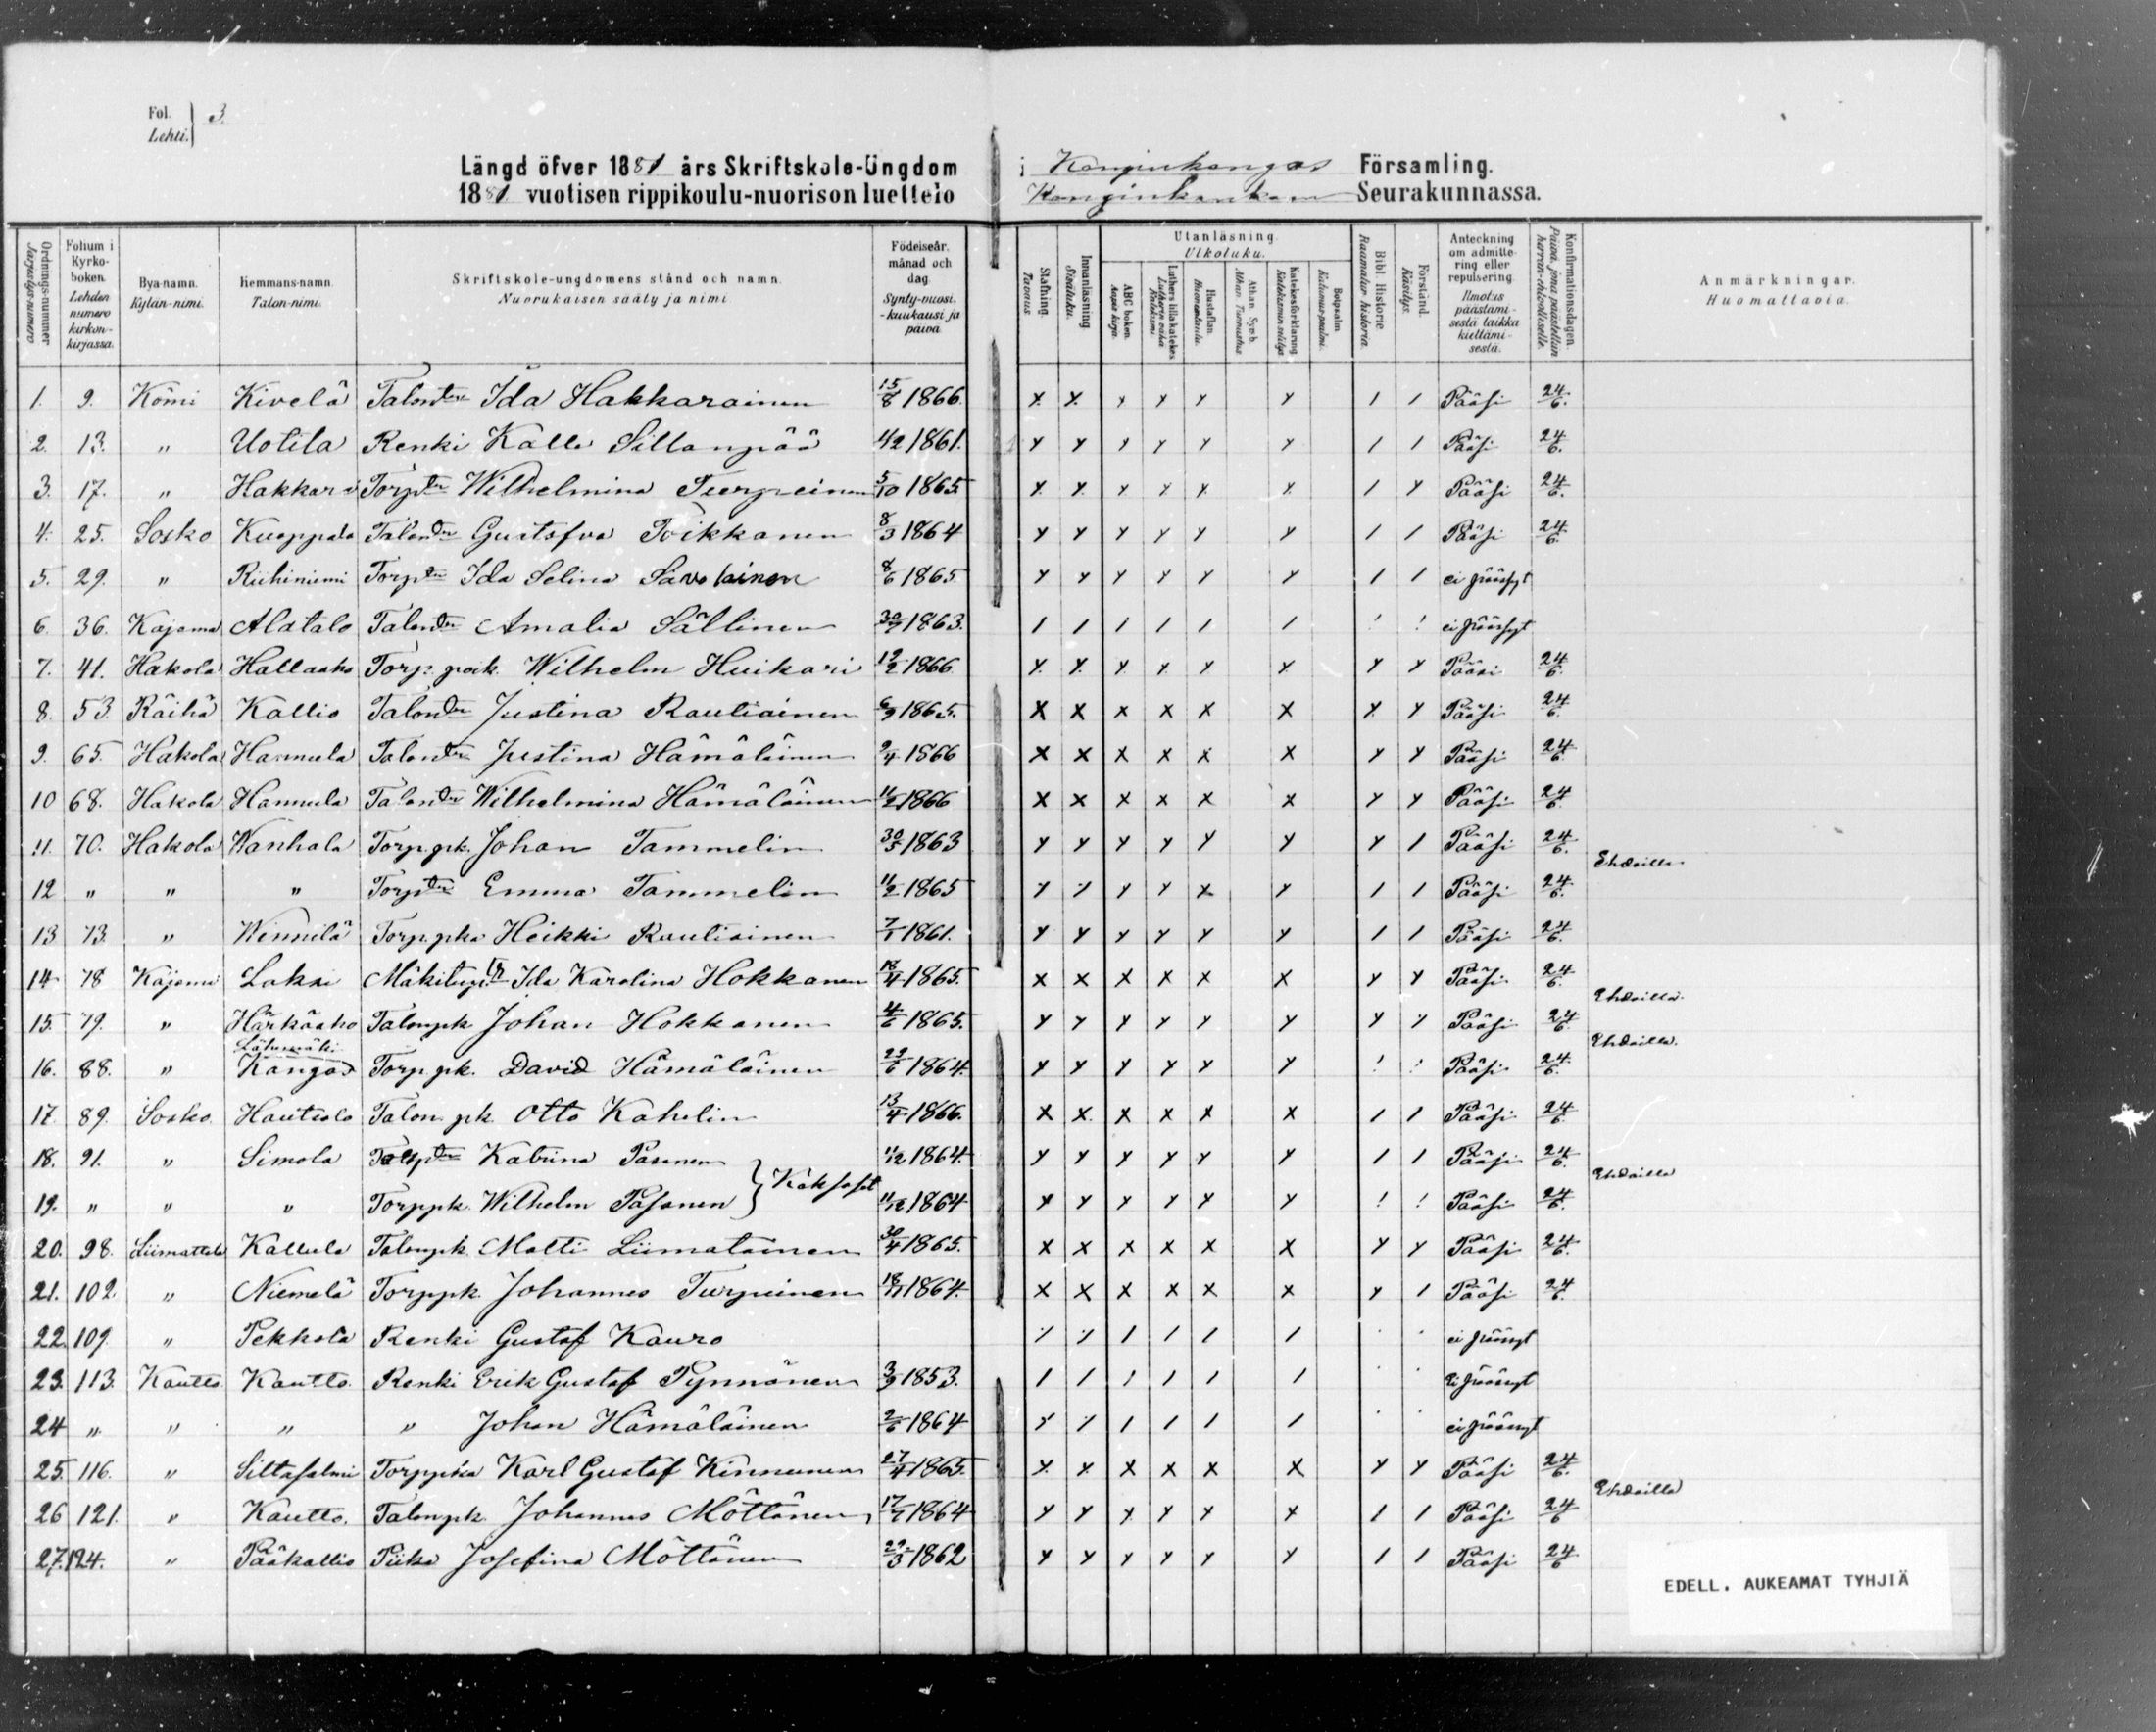 Fol. 3.
Lehti.
Längd öfver 1881 års Skriftskole-Ungdom i Konginkangas Församling.
1881 vuotisen rippikoulu-nuorison luettelo Konginkankaan Seurakunnassa.
Ordnings-nummer Järjestys-numero
Folium i Kyrko-boken. Lehden numero kirkon-kirjassa.
Bya-namn. Kylän-nimi.
Hemmans-namn. Talon-nimi.
Skriftskole-ungdomens stånd och namn. Nuorukaisen sääty ja nimi
Födelseår, månad och dag. Synty-vuosi, -kuukausi ja päivä
Stafning. Tavaus
Innanläsning. Sisäluku.
Utanläsning. Ulkoluku.
ABC boken. Aapis kirja.
Luthers lilla katekes. Lutherin vähä Katekismi
Hustaflan. Huoneentaulu.
Athan. Symb. Athan. Tunnustus
Katekesförklaring. Katekismin selitys
Botpsalm. Katumus-psalmi.
Bibl. Historie. Raamatun historia.
Förstånd. Käsitys.
Anteckning om admittering eller repulsering. Ilmotus päästämisestä taikka kieltämisestä.
Konfirmationsdagen. Päivä, jona päästettiin herran-ehtoolliselle.
Anmärkningar. Huomattavia.
1. 9. Kömi Kivelä Talontr Ida Hakkarainen 15/8 1866 x x x x x x / / Pääsi 24/6.
2. 13. " Uotila Renki Kalle Sillanpää 4/2 1861. x x x x x x / / Pääsi 24/6.
3. 17. " Hakkari Torptr Wilhelmina Turpeinen 5/10 1865 x x x x x x / x Pääsi 24/6.
4. 25. Sosko Kuoppala Talontr Gustafva Poikkonen 8/3 1864 x x x x x x / / Pääsi 24/6.
5. 29. " Riihiniemi Torptr Ida Selina Savolainen 8/6 1865 x x x x x x / / ei päässyt
6. 36. Kajoma Alatalo Talontr Amalia Sällinen 30/7 1863. / / / / / / ! ! ei päässyt
7. 41. Hakola Hallaaho Torp. poik. Wilhelm Huikari 12/2 1866 x x x x x x x x Pääsi 24/6.
8. 53. Räihä Kallio Talontr Justina Rautiainen 6/9 1865. x x x x x x x x Pääsi 24/6.
9. 65. Hakola Hannula Talontr Justina Hämäläinen 9/4 1866 x x x x x x x x Pääsi 24/6.
10 68. Hakola Hannula Talontr Wilhelmina Hämäläinen 11/2 1866 x x x x x x x x Pääsi 24/6.
11. 70. Hakola Wanhala Torp.pk. Johan Tammelin 30/3 1863 x x x x x x x / Pääsi 24/6. Ehdoilla
12 " " " Torptr Emma Tammelin 11/2 1865 x x x x x x / / Pääsi 24/6.
13 73. " Winnilä Torp.pka Heikki Rautiainen 7/1 1861. x x x x x x / / Pääsi 24/6.
14 78 Kajoma Laksi Mäkitup.tr Ida Karolina Hokkanen 18/4 1865. x x x x x x x x Pääsi 24/6. Ehdoilla.
15. 79. " Härkäaho Talonpk Johan Hokkanen 4/6 1865. x x x x x x x x Pääsi 24/6 Ehdoilla.
16. 88. " Lähemäki Kangas Torp pk. David Hämäläinen 23/6 1864. x x x x x x ! ! Pääsi 24/6.
17. 89. Sosko. Hautiolo Talon pk. Otto Kahelin 13/4 1866. x x x x x x / / Pääsi 24/6
18. 91. " Simola Torptr Katrina Pasanen 11/12 1864. x x x x x x / / Pääsi 24/6. Ehdoilla
} Kaksoset
19. " " " Torppk. Wilhelm Pasanen 11/12 1864 x x x x x x ! ! Pääsi 24/6.
20. 98. Liimattala Kallula Talonpk Matti Liimatainen 30/4 1865. x x x x x x x x Pääsi 24/6.
21. 102. " Niemelä Torppk. Johannes Turpeinen 18/11 1864. x x x x x x x / Pääsi 24/6.
22. 109. " Pekkola Renki Gustaf Kauro x x / / / / ei päässyt
23. 113. Kautto Kautto Renki Erik Gustaf Pynnönen 3/9 1853. / / / / / / ei päässyt
24 " " " " Johan Hämäläinen 2/6 1864 x x / / / / ei päässyt
25. 116. " Siltasalmi Torppka Karl Gustaf Kinnunen 27/4 1865. x x x x x x x x Pääsi 24/6. Ehdoilla
26 121. " Kautto. Talonpk. Johannes Möttönen 17/7 1864 x x x x x x / / Pääsi 24/6
27. 124. " Pääkallio Piika Josefina Möttönen 22/3 1862 x x x x x x / / Pääsi 24/6
EDELL. AUKEAMAT TYHJIÄ